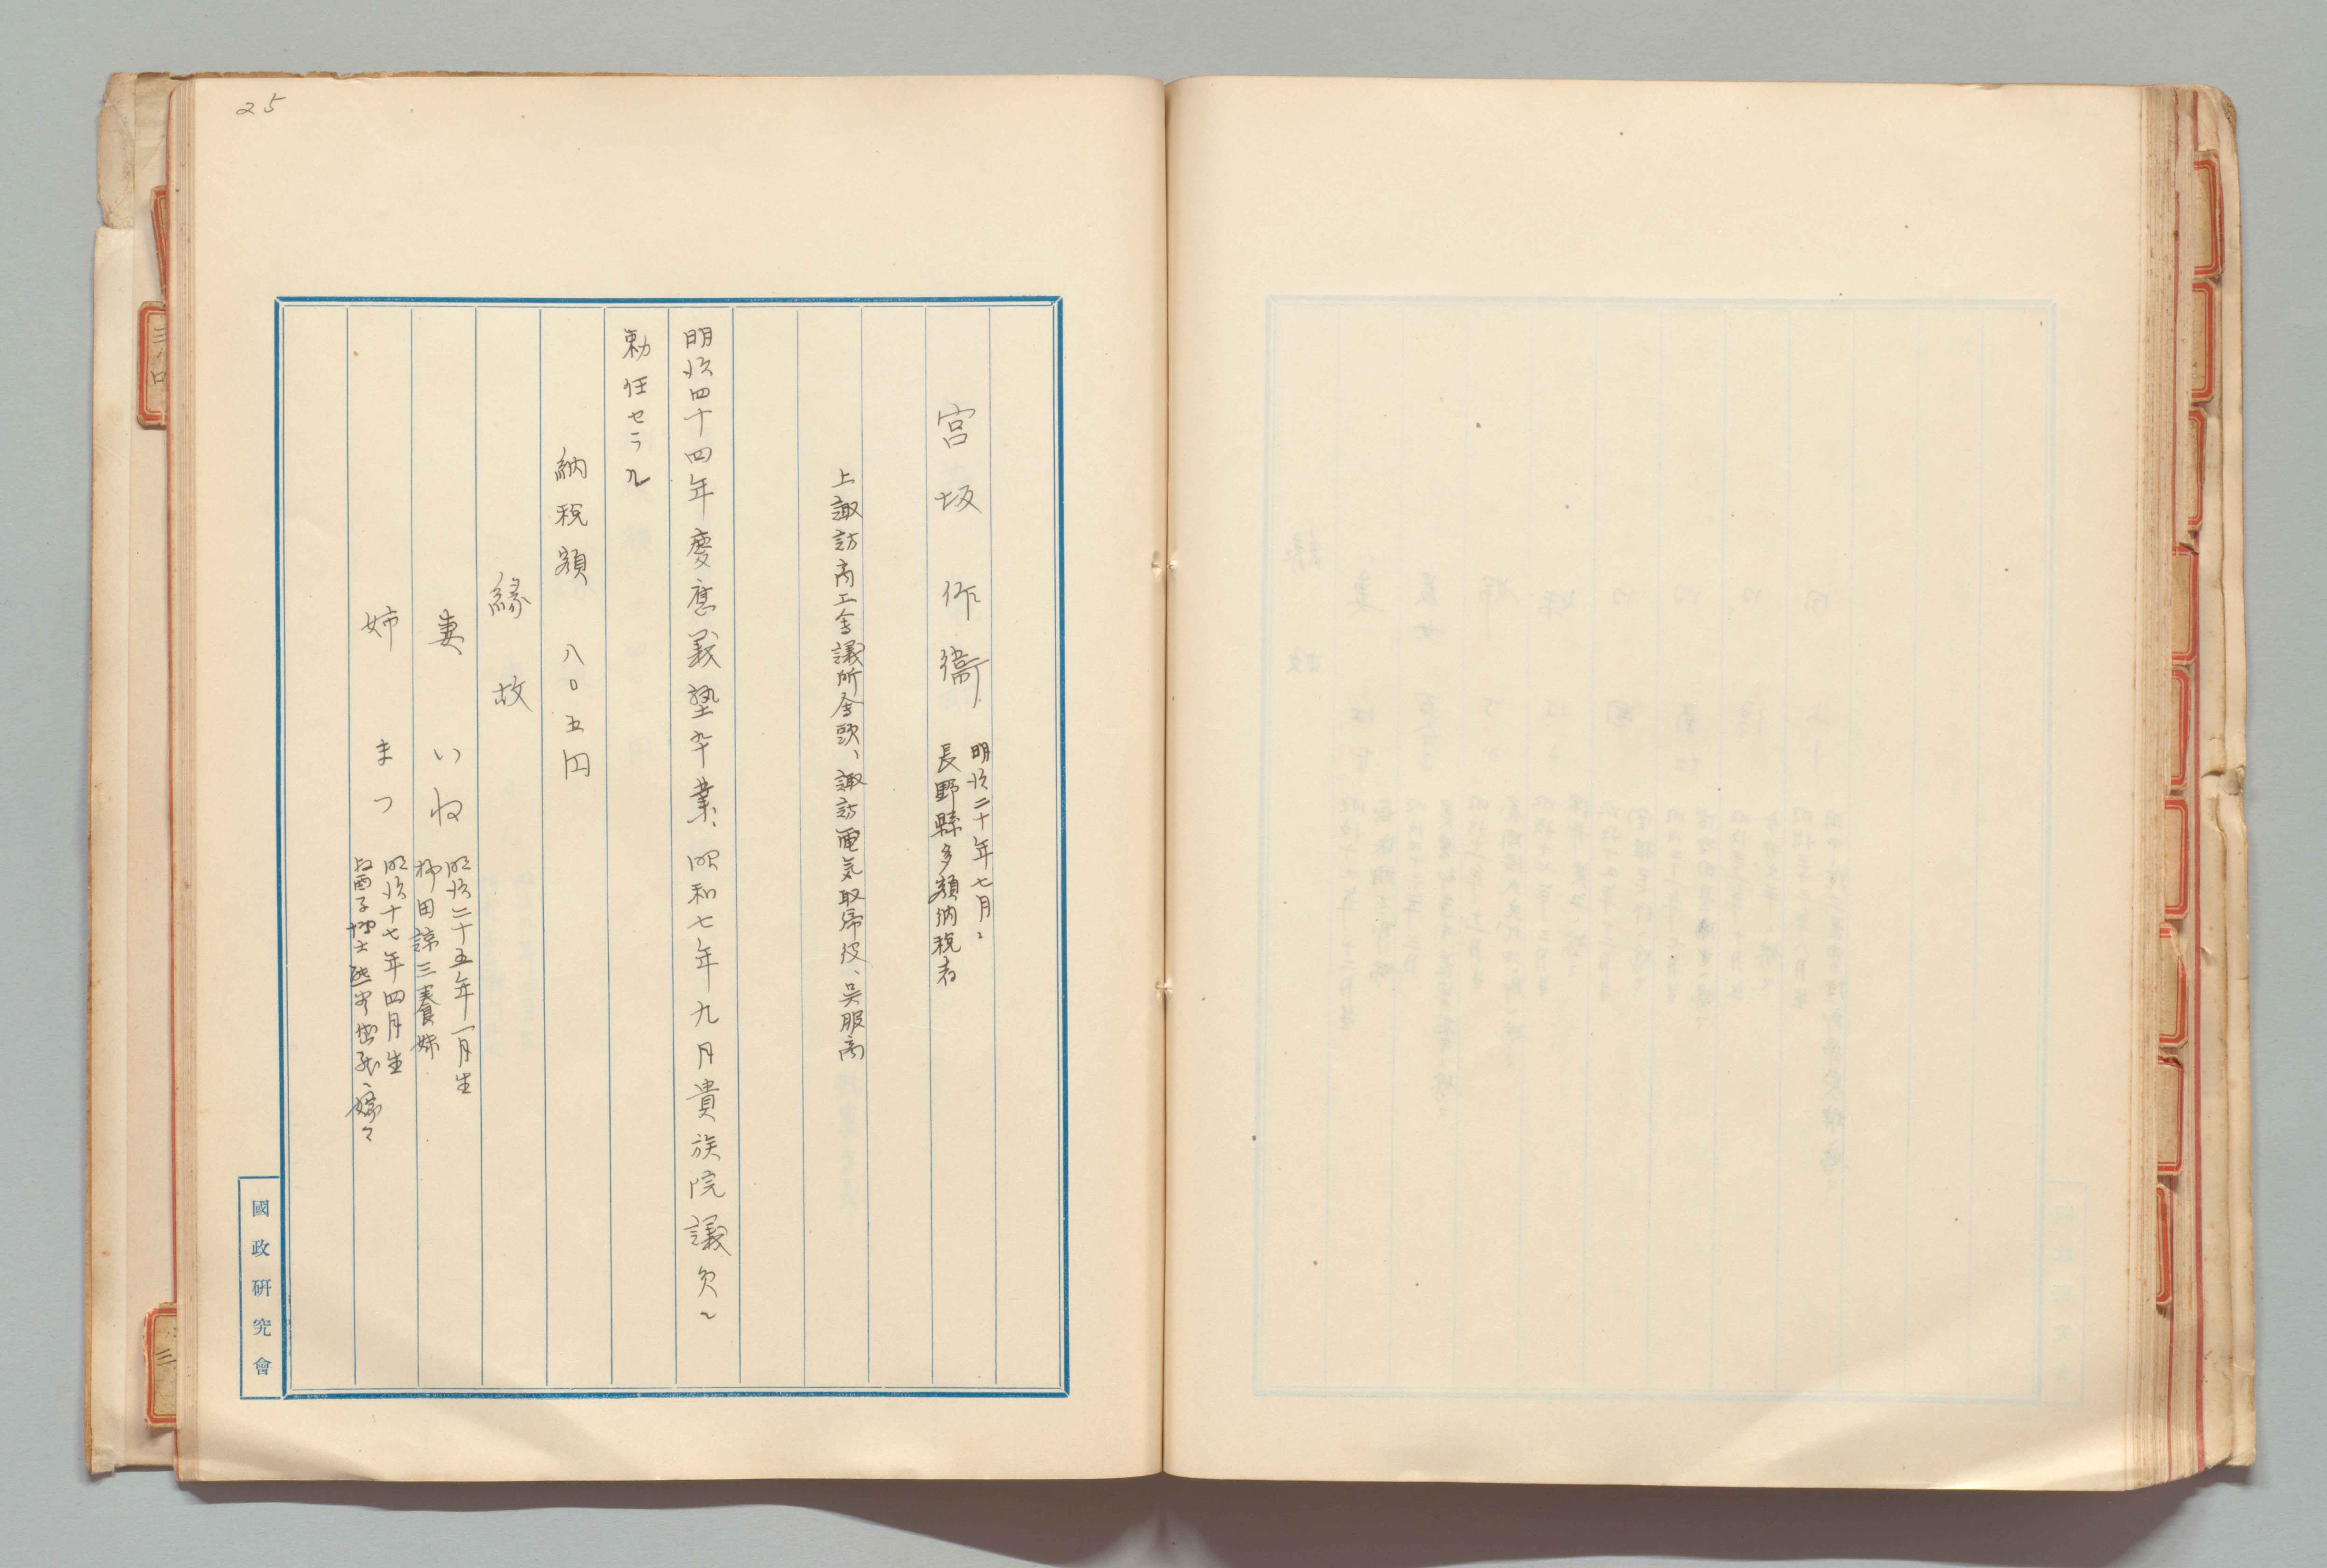 25
宮坂作衞
明治二十年七月、
長野縣多額納税者
上諏訪商工會議所會頭、諏訪電気取締役、呉服商
明治四十四年慶應義塾卆業、昭和七年九月貴族院議員ニ
勅任セラル
納税額 八〇五円
緣故
妻 いね
明治二十五年一月生
柳田諒三養姉
姉 まつ
明治十七年四月生
國政研究會
三ノ口
三